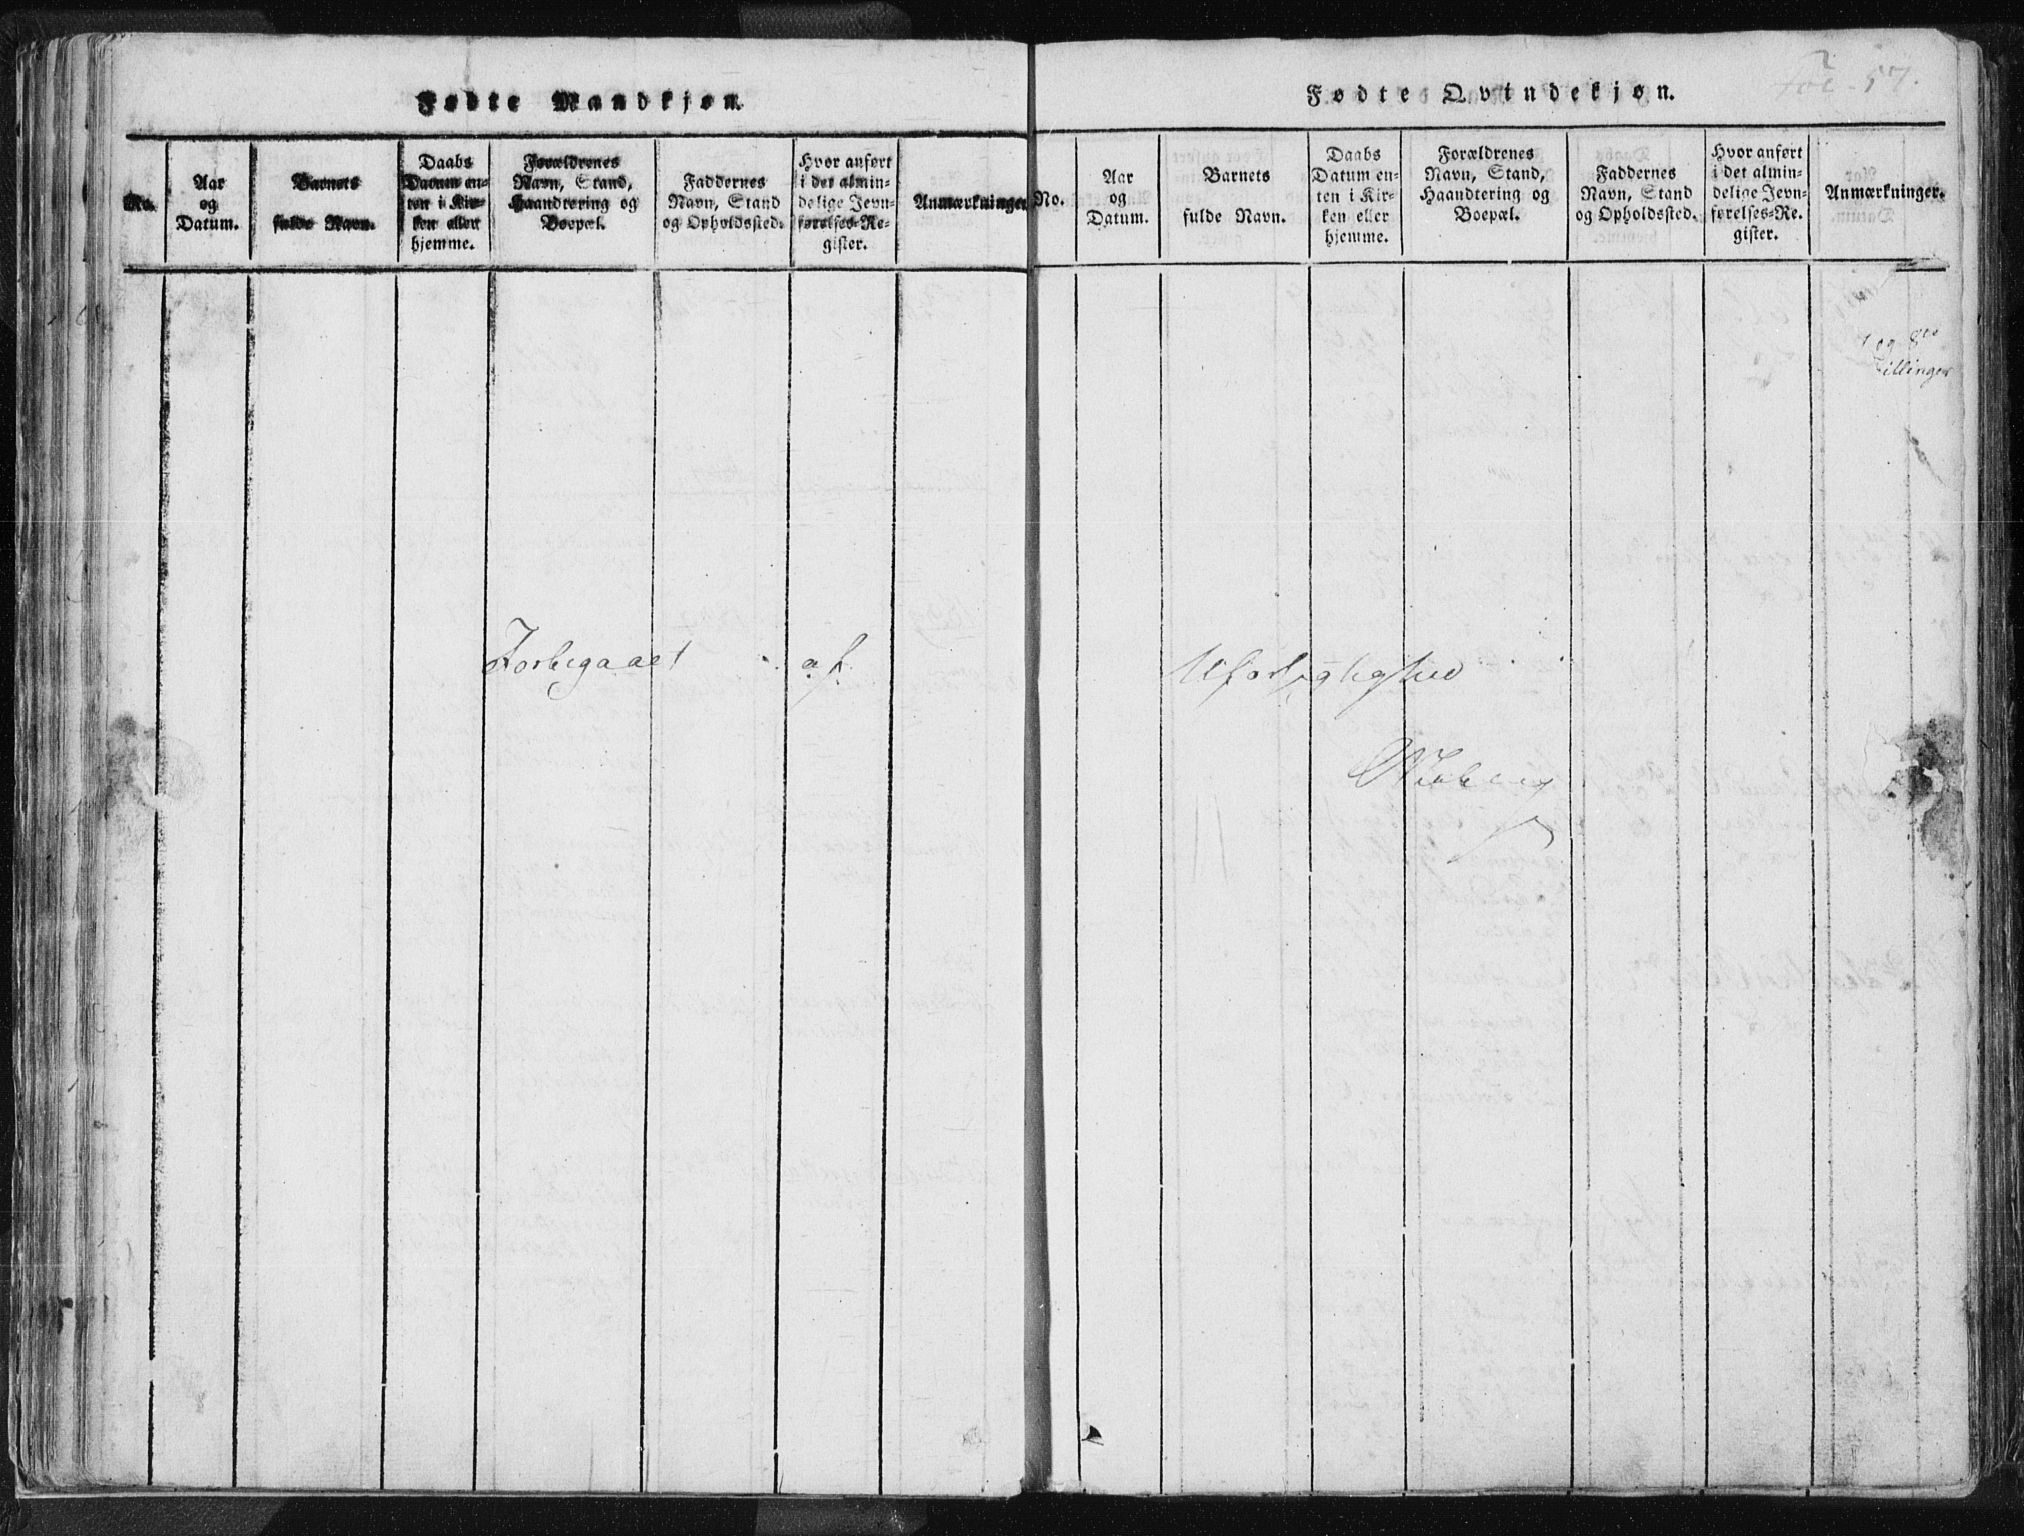 Fødte Mandkjøn.
No.
Aar
og
Datum.
Barnets
fulde Navn.
Daabs
Datum en-
ten i Kir-
ken eller
hjemme.
Forældrenes
Navn, Stand,
Haandtering og
Boepæl.
Faddernes
Navn, Stand
og Opholdssted.
Hvor anført
i det almin-
delige Jevn-
førelses-Re-
gister.
Anmærkninger
Fødte Qvindekjøn.
Fol. 57.
No.
Aar
og
Datum.
Barnets
fulde Navn.
Daabs
Datum en-
ten i Kir-
ken eller
hjemme.
Forældrenes
Navn, Stand,
Haandtering og
Boepæl.
Faddernes
Navn, Stand
og Opholdssted.
Hvor anført
i det almin-
delige Jevn-
førelses-Re-
gister.
Anmærkninger.
og 8
illinger
Forbigaaet af Uforsigtighed